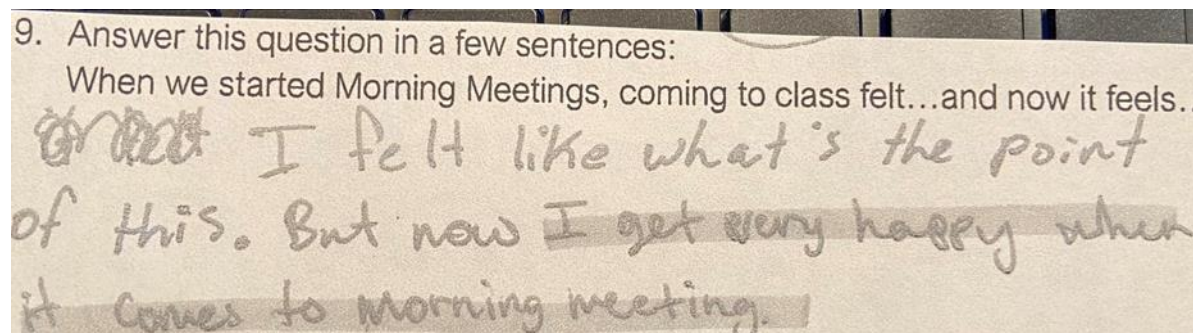 9. Answer this question in a few sentences:
When we started Morning Meetings, coming to class felt...and now it feels..
I felt like what's the point
of this. But now I get very happy when
it comes to morning meeting.